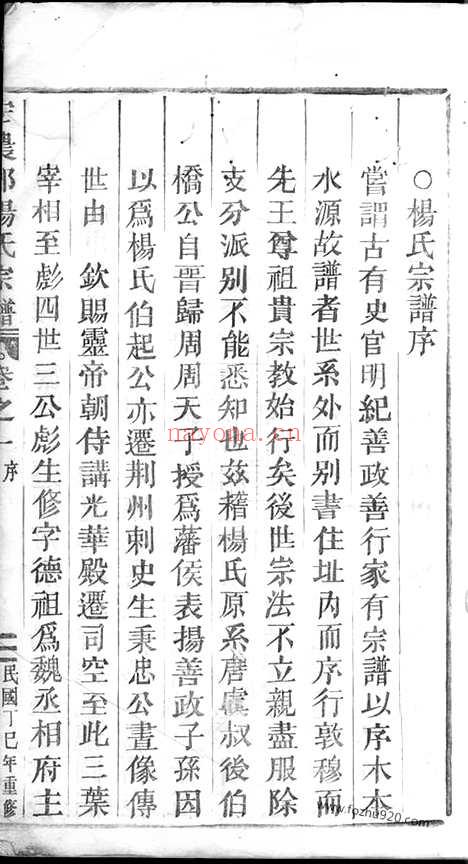 ○楊氏宗譜序
嘗謂古有史官明紀善政善行家有宗譜以序木本
水源故譜者世系外而別書住址內而序行敦穆而
先王尊祖貴宗教始行矣後世宗法不立親盡服除
支分派別不能悉知也茲稽楊氏原系唐虞叔後伯
橋公自晉歸周周天子授爲藩侯表揚善政子孫因
以爲楊氏伯起公亦遷荆州刺史生秉忠公晝像傳
世由　欽賜靈帝朝侍講光華殿遷司空至此三葉
宰相至彪四世三公彪生修字德祖爲魏丞相府主
農郡楊氏宗譜
卷之一
序
二
民國丁巳年重修
nayona.cn
www.fozhu920.com